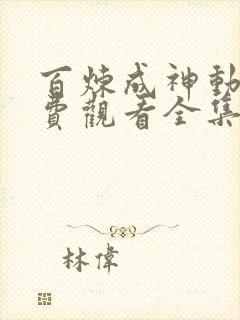 百煉成神動
費觀看全集
林偉